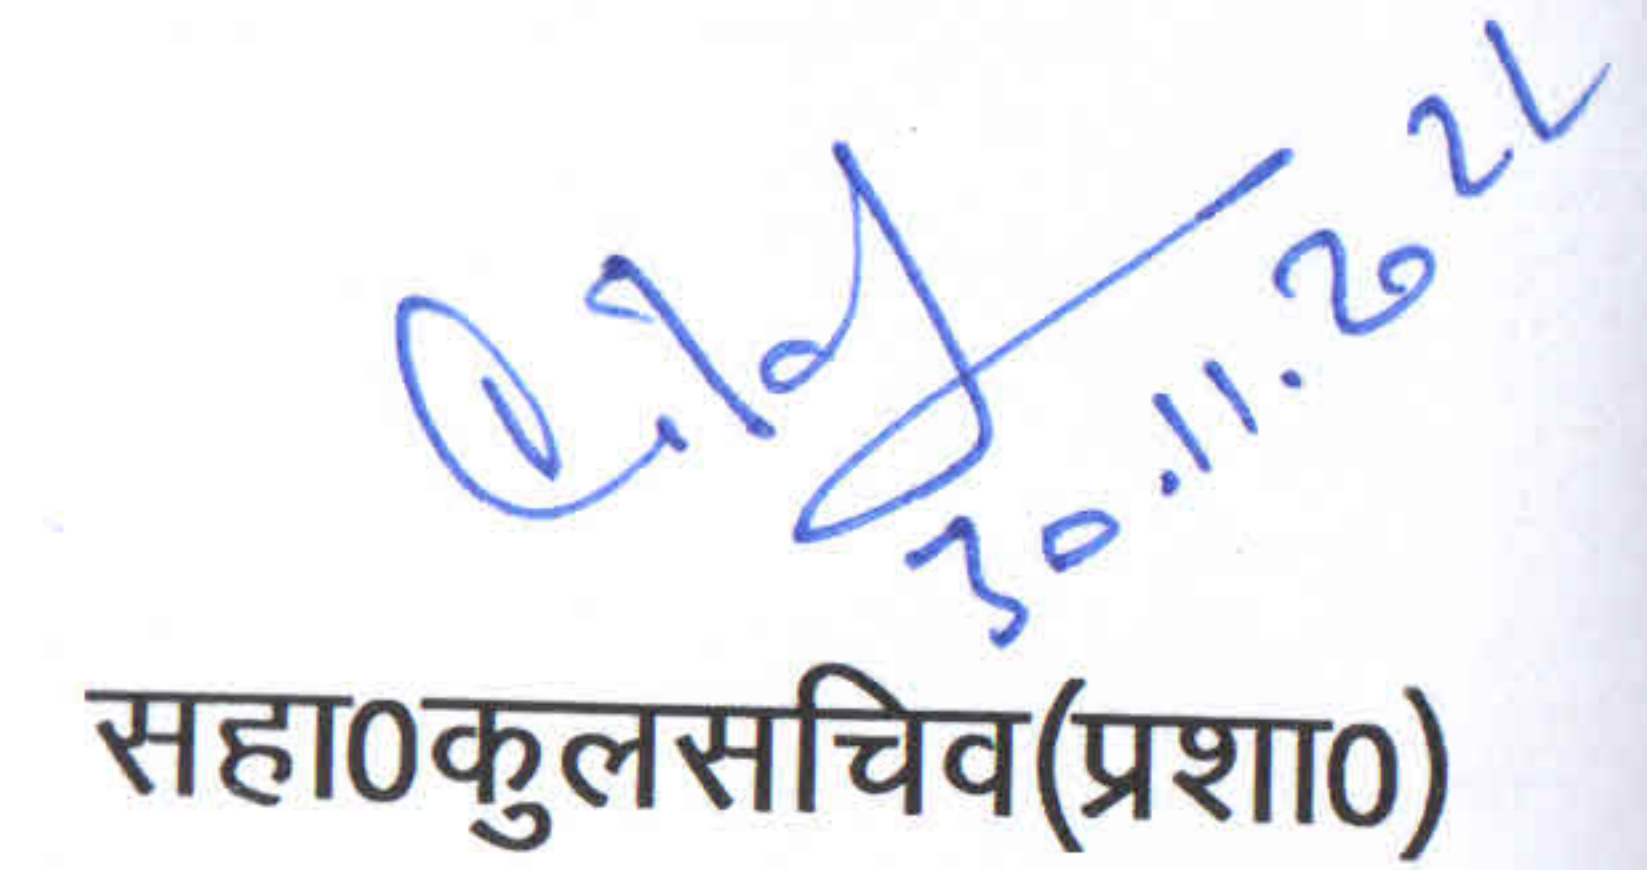 30.11.2021
सहा0कुलसचिव(प्रशा0)